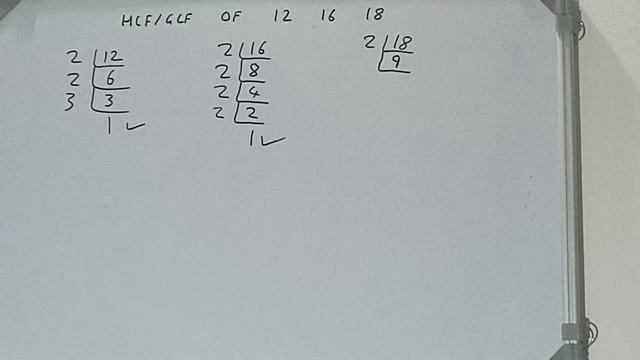 HCF/GCF OF 12 16 18
2 12
2 6
3 3
1 ✓
2 16
2 8
2 4
2 2
1 ✓
2 18
9